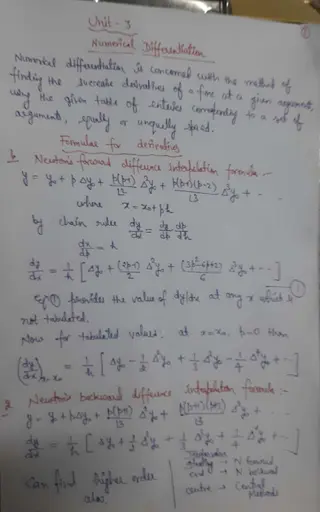 ①
Unit - 3
Numerical Differentiation
Numerical differentiation is concerned with the method of
finding the successive derivatives of a func at a given argument,
using the given table of entries corresponding to a set of
argument, equally or unequally spaced.
Formulas for derivatives
1. Newton's forward difference Interpolation formula :-
y = y₀ + pΔy₀ + p(p-1)/L2 Δ²y₀ + p(p-1)(p-2)/L3 Δ³y₀ + - -
where x = x₀ + ph
by chain rules dy/dx = dy/dp dp/dx
dx/dp = h
dy/dx = 1/h [Δy₀ + (2p-1)/2 Δ²y₀ + (3p²-6p+2)/6 Δ³y₀ + - - ] ①
Eq ① provides the value of dy/dx at any x which is
not tabulated.
Now for tabulated values. at x=x₀, p=0 then
(dy/dx)x=x₀ = 1/h [Δy₀ - 1/2 Δ²y₀ + 1/3 Δ³y₀ - 1/4 Δ⁴y₀ + - ]
2. Newton's backward difference Interpolation formula :-
y = yₙ + p∇yₙ + p(p+1)/L2 ∇²yₙ + p(p+1)(p+2)/L3 ∇³yₙ +
dy/dx = 1/h [∇yₙ + 1/2 ∇²yₙ + 1/3 ∇³yₙ + 1/4 ∇⁴yₙ + - ]
→ N forward
end → N backward
Can find higher order
centre → Central
also.
methods